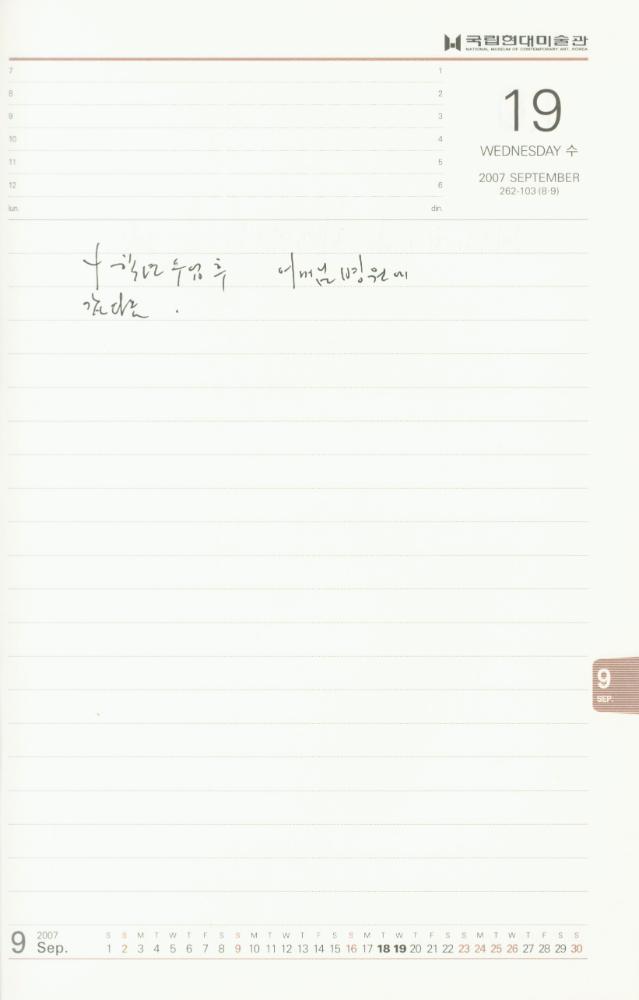 국립현대미술관
NATIONAL MUSEUM OF CONTEMPORARY ART, KOREA
7 1
8 2
9 3
10 4
11 5
12 6
lun. din.
19
WEDNESDAY 수
2007 SEPTEMBER
262-103 (8·9)
4학년 수업 후 어머님 병원에
갔다옴.
9
SEP.
9 2007 Sep.
S S M T W T F S S M T W T F S S M T W T F S S M T W T F S S
1 2 3 4 5 6 7 8 9 10 11 12 13 14 15 16 17 18 19 20 21 22 23 24 25 26 27 28 29 30